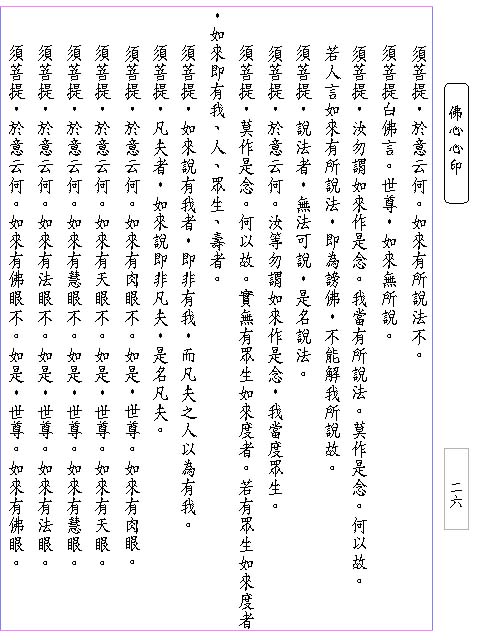 佛心心印
二六
須菩提．於意云何。如來有所說法不。
須菩提白佛言。世尊．如來無所說。
須菩提．汝勿謂如來作是念。我當有所說法。莫作是念。何以故。
若人言如來有所說法．即為謗佛．不能解我所說故。
須菩提．說法者．無法可說．是名說法。
須菩提．於意云何。汝等勿謂如來作是念．我當度眾生。
須菩提．莫作是念。何以故。實無有眾生如來度者。若有眾生如來度者
．如來即有我、人、眾生、壽者。
須菩提．如來說有我者．即非有我．而凡夫之人以為有我。
須菩提．凡夫者．如來說即非凡夫．是名凡夫。
須菩提．於意云何。如來有肉眼不。如是．世尊。如來有肉眼。
須菩提．於意云何。如來有天眼不。如是．世尊。如來有天眼。
須菩提．於意云何。如來有慧眼不。如是．世尊。如來有慧眼。
須菩提．於意云何。如來有法眼不。如是．世尊。如來有法眼。
須菩提．於意云何。如來有佛眼不。如是．世尊。如來有佛眼。